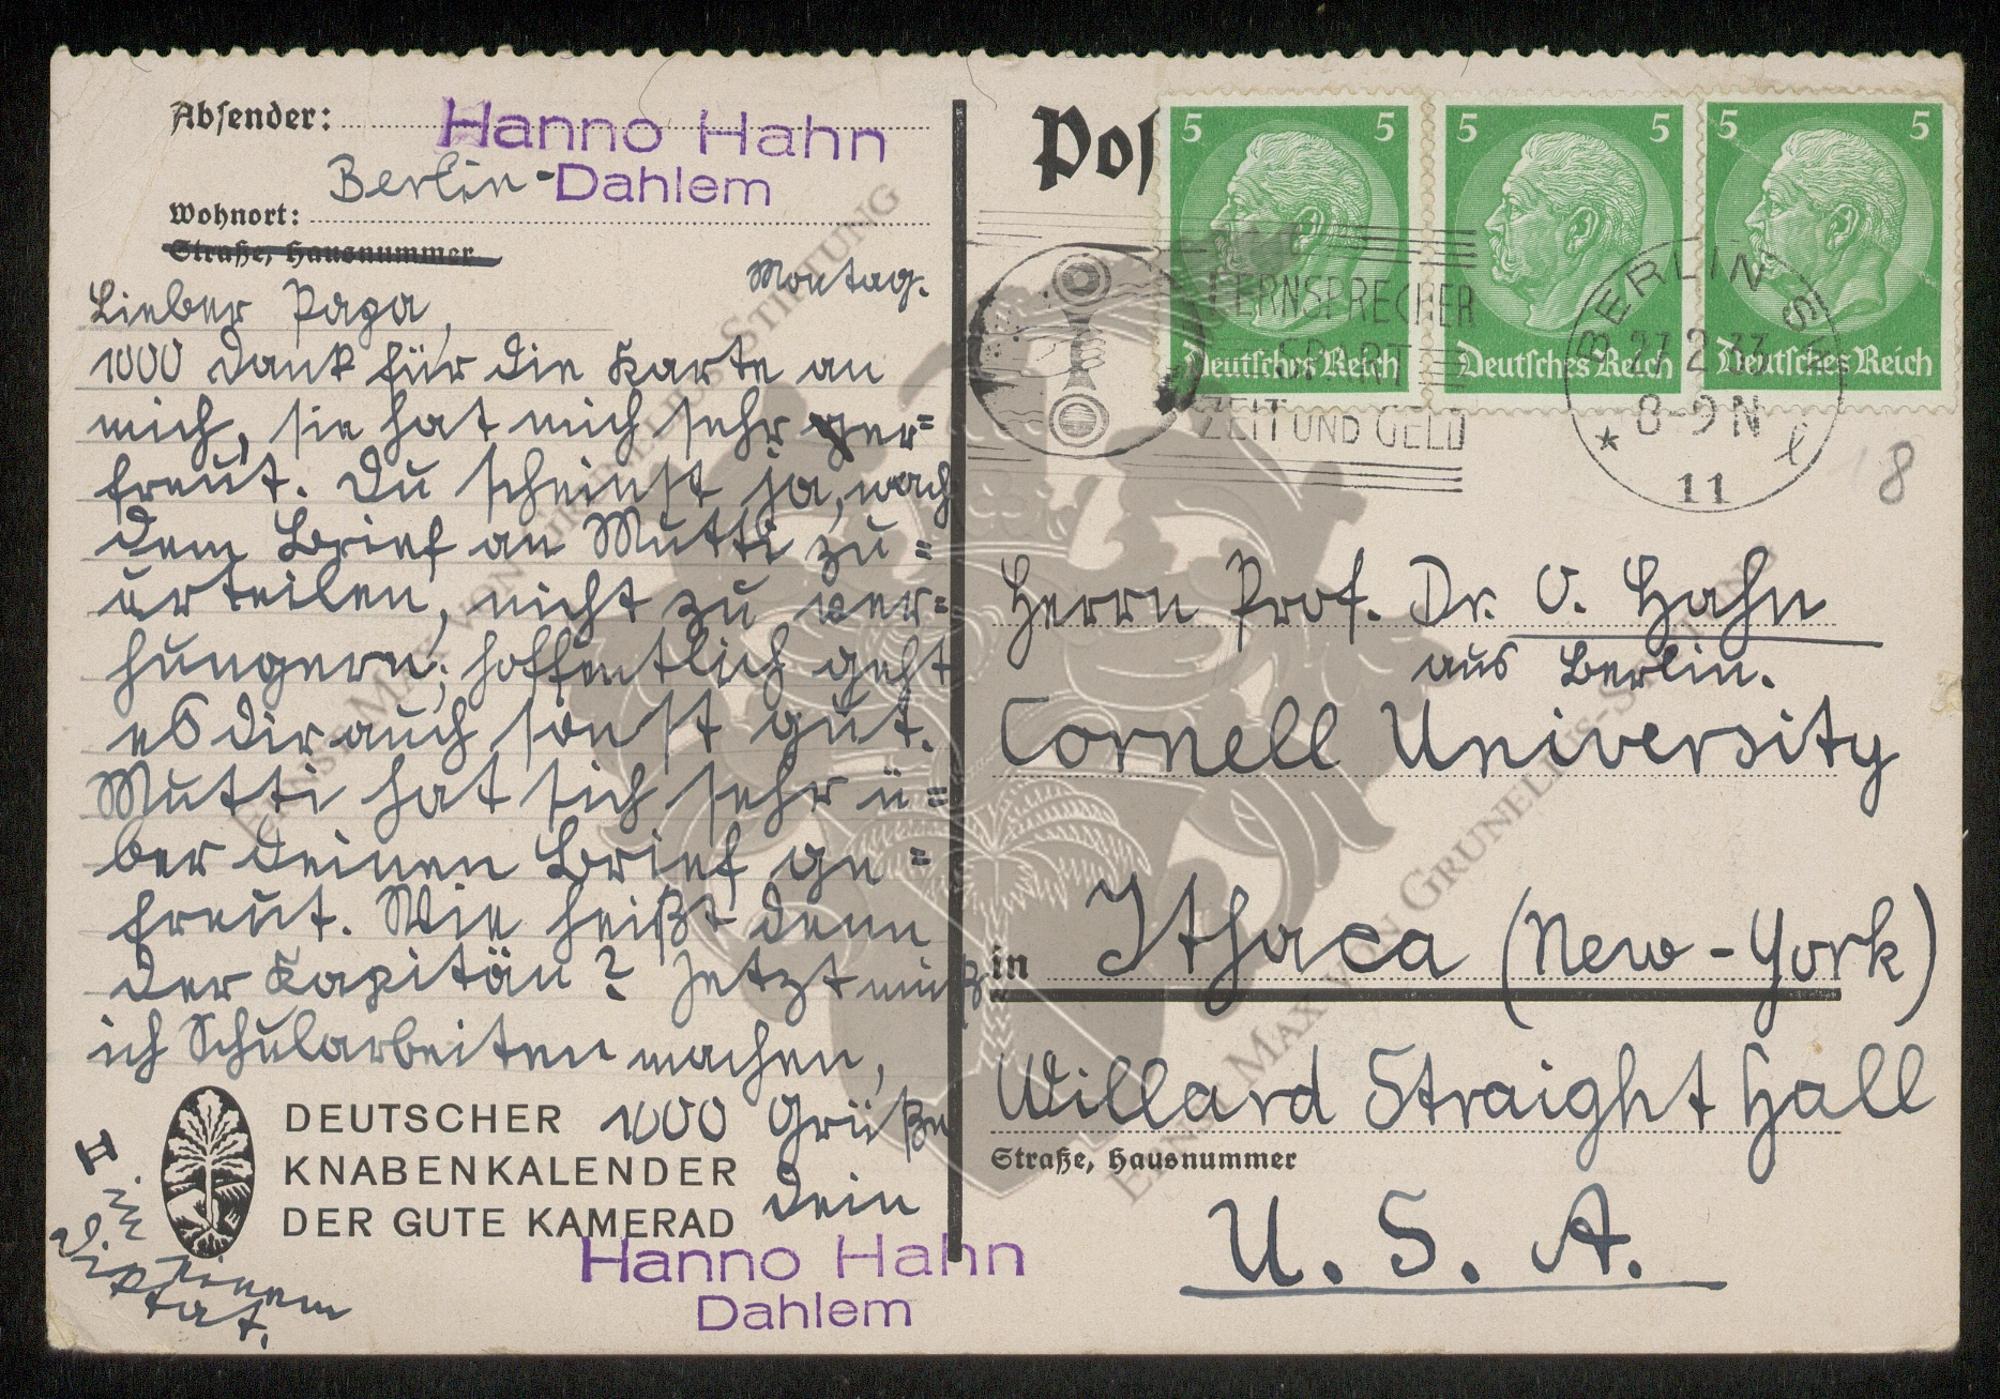 Absender: Hanno Hahn
Berlin-Dahlem
Wohnort:
Straße, Hausnummer
Montag.
Lieber Papa,
1000 Dank für die Karte an
mich, sie hat mich sehr er=
freut. Du scheinst ja, nach
dem Brief an Mutti zu=
urteilen, nicht zu ver=
hungern; hoffentlich geht
es dir auch sonst gut.
Mutti hat sich sehr ü=
ber deinen Brief ge=
freut. Wie heißt denn
der Kapitän? Jetzt muß
ich Schularbeiten machen,
1000 Grüße
Dein
Hanno Hahn
Dahlem
DEUTSCHER
KNABENKALENDER
DER GUTE KAMERAD
II im
einem
Diktat.
Pos
5 5 5 5 5 5
Deutsches Reich Deutsches Reich Deutsches Reich
FERNSPRECHER
SPART
ZEIT UND GELD
BERLIN SW
27.2.33
8-9 N
* 11 l
8
Herrn Prof. Dr. O. Hahn
aus Berlin.
Cornell University
in Ithaca (New-York)
Willard Straight Hall
Straße, Hausnummer
U. S. A.
ERNST MAX VON GRUNELIUS-STIFTUNG
ERNST MAX VON GRUNELIUS-STIFTUNG